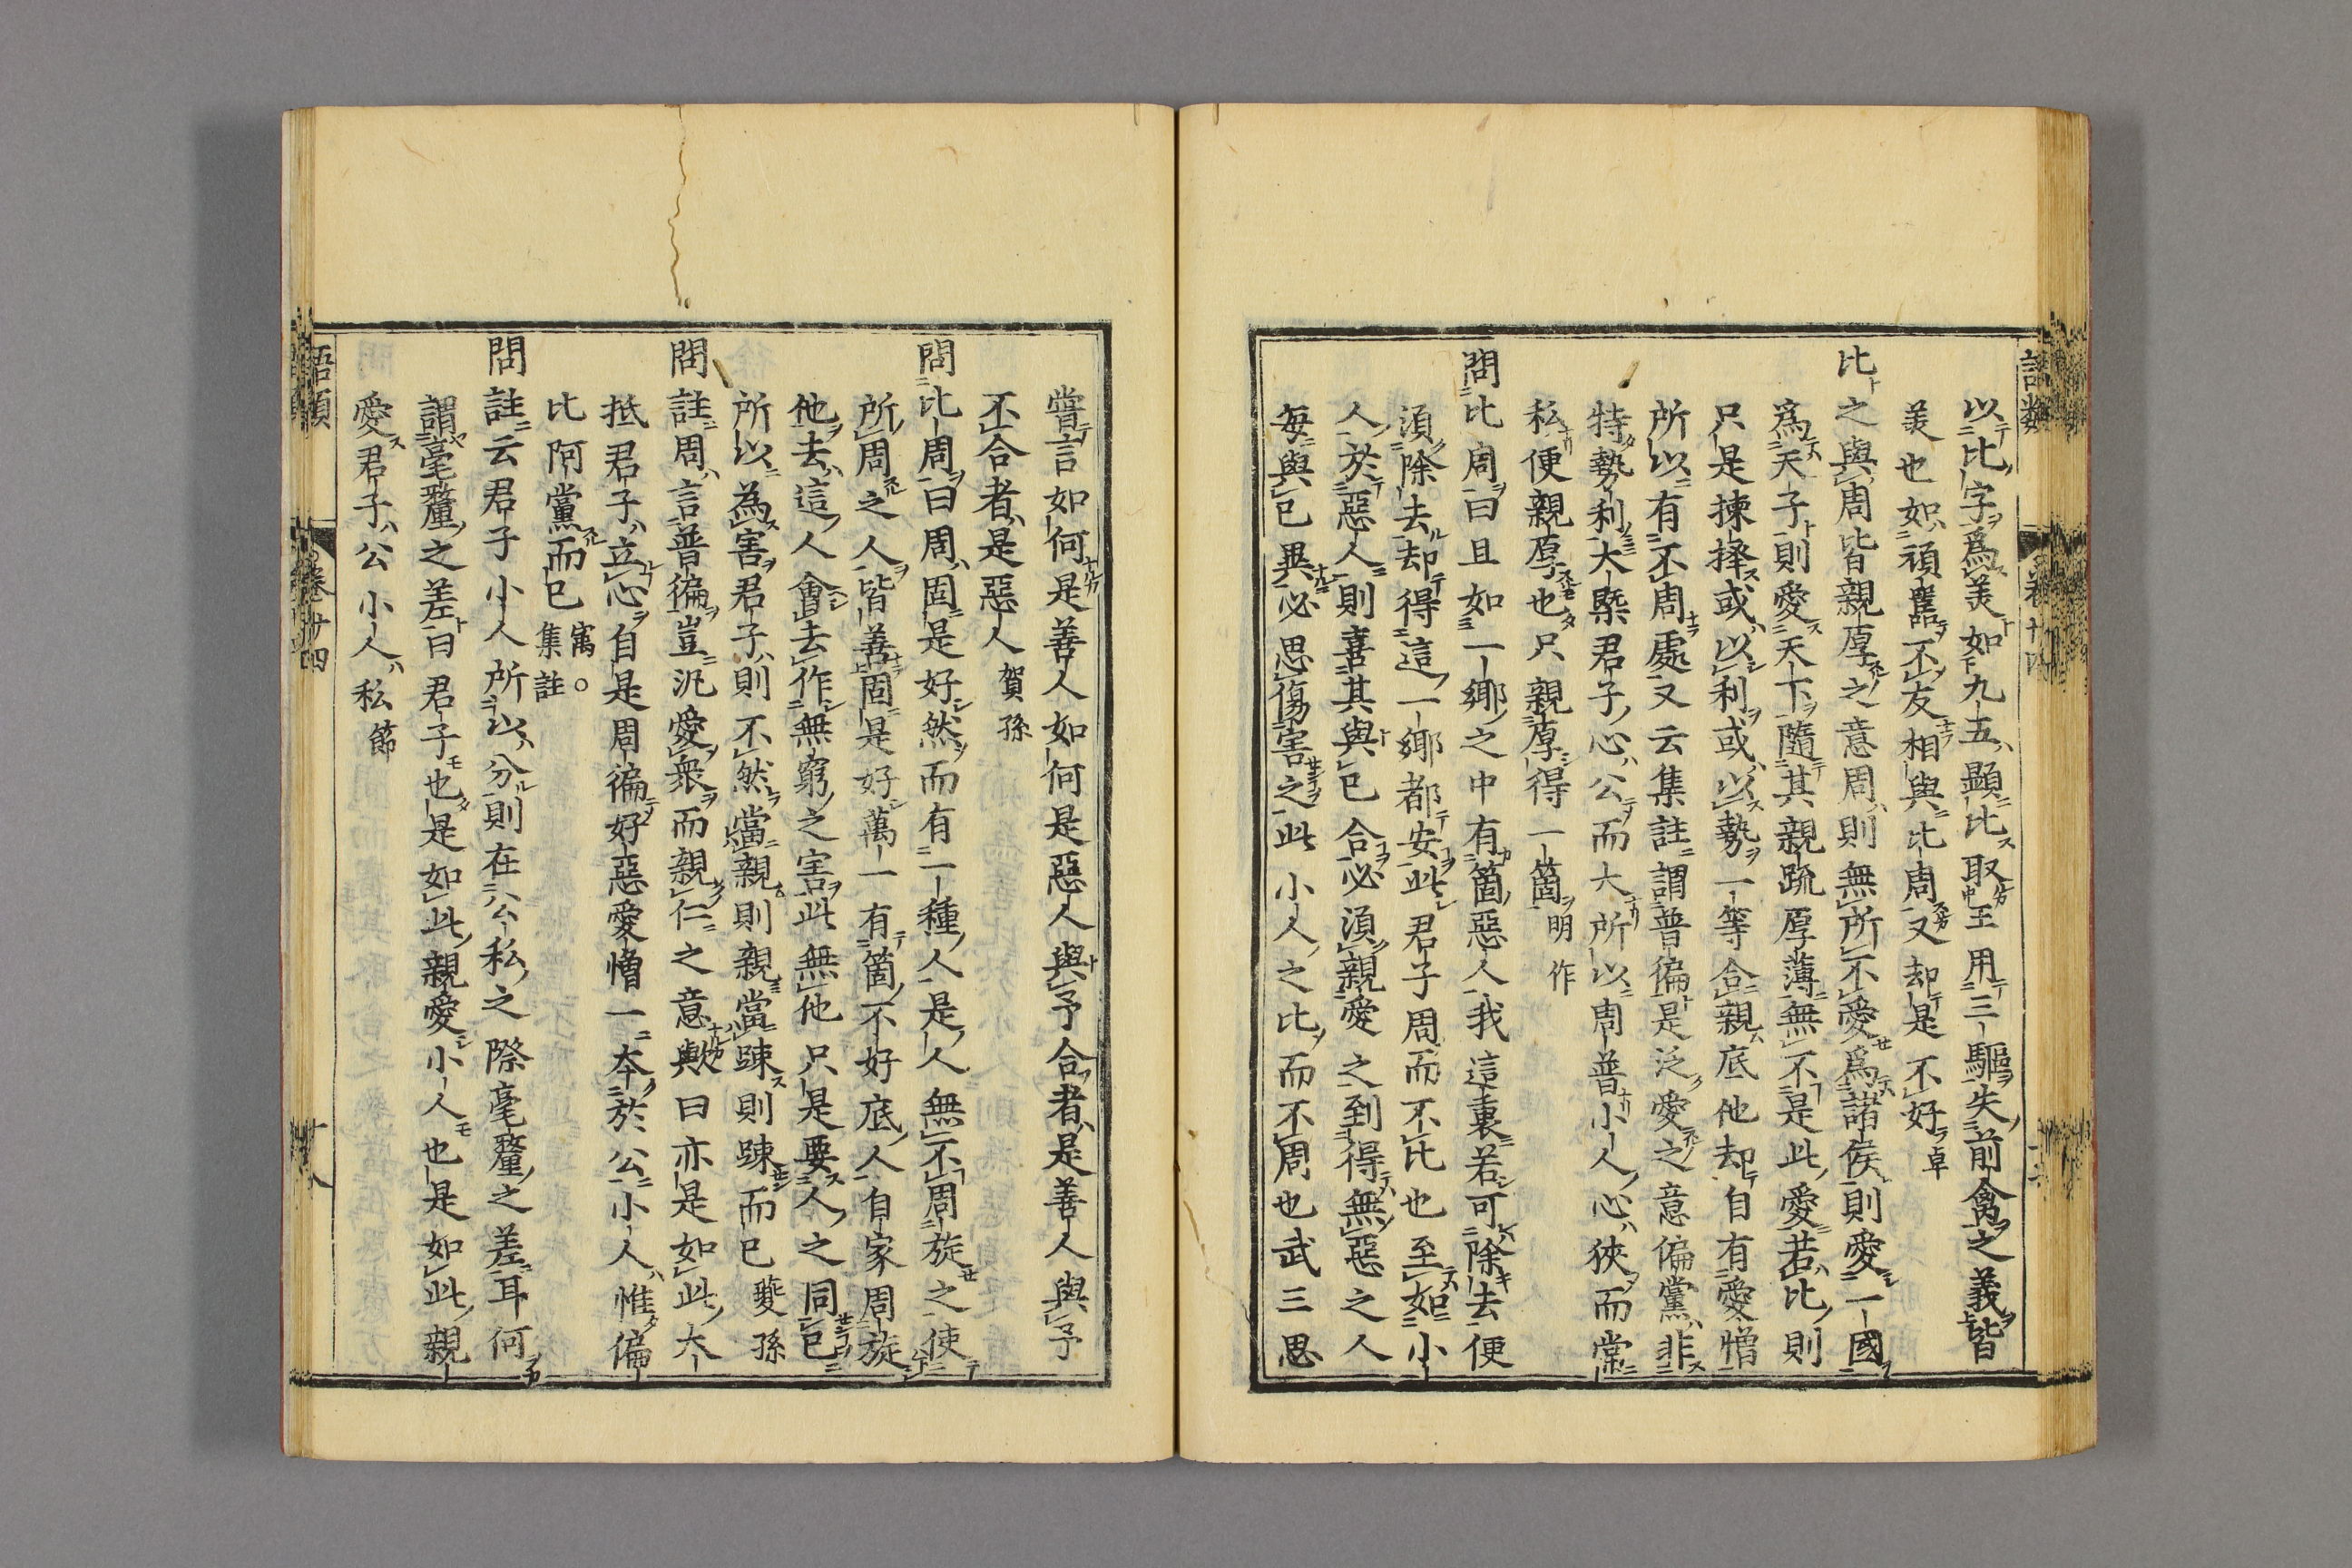 以比字爲美如九五顯比取王用三驅失前禽之義皆
美也如頑嚚不友相與比周又却是不好卓
比之與周皆親厚之意周則無所不愛爲諸侯則愛一國
爲天子則愛天下隨其親疏厚薄無不是此愛若比則
只是揀擇或以利或以勢一等合親底他却自有愛憎
所以有不周處又云集註謂普徧是泛愛之意偏黨非
特勢利大槩君子心公而大所以周普小人心狹而常
私便親厚也只親厚得一箇明作
問比周曰且如一鄉之中有箇惡人我這裏若可除去便
須除去却得這一鄉都安此君子周而不比也至如小
人於惡人則喜其與己合必須親愛之到得無惡之人
每與己異必思傷害之此小人之比而不周也武三思
嘗言如何是善人如何是惡人與予合者是善人與予
不合者是惡人賀孫
問比周曰周固是好然而有一種人是人無不周旋之使
所周之人皆善固是好萬一有箇不好底人自家周旋
他去這人會去作無窮之害此無他只是要人之同己
所以為害君子則不然當親則親當踈則踈而已夔孫
問註周言普徧豈汎愛衆而親仁之意歟曰亦是如此大
抵君子立心自是周徧好惡愛憎一本於公小人惟偏
比阿黨而已㝢。集註
問註云君子小人所以分則在公私之際毫釐之差耳何
謂毫釐之差曰君子也是如此親愛小人也是如此親
愛君子公小人私節
語類
卷十四
十八